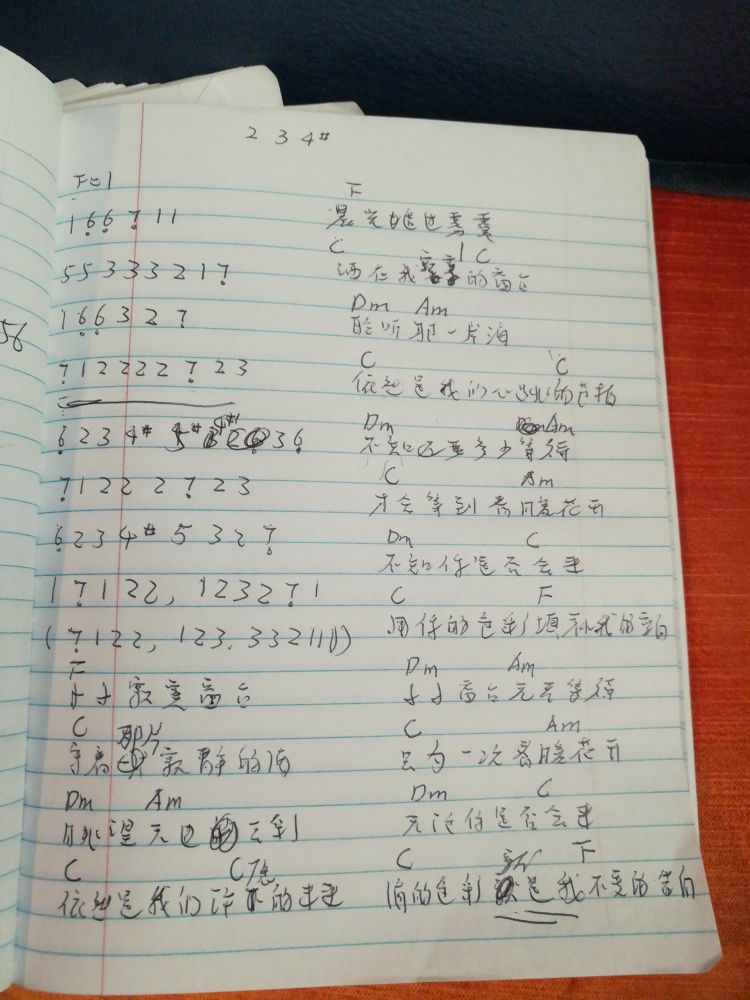 2 3 4#
F=1
1 6 6 7 1 1
5 5 3 3 3 2 1 7
1 6 6 3 2 7
7 1 2 2 2 2 7 2 3
6 2 3 4# 5 3 6
7 1 2 2 2 7 2 3
6 2 3 4# 5 3 2 7
1 7 1 2 2, 1 2 3 2 7 1
(7 1 2 2, 1 2 3. 3 3 2 1 1 1)
F
寂寞窗台
C
守着那片寂静的海
Dm Am
眺望天边云彩
C C
依然是我们许下的未来
56
F
晨光
C C
洒在我的窗台
Dm Am
聆听那一片海
C C
依然是我们心跳的节拍
Dm Am
不知还要多少等待
C Am
才会等到春暖花开
Dm C
不知你是否会来
C F
用你的色彩填补我的空白
Dm Am
窗台无尽等待
C Am
只为一次春暖花开
Dm C
无论你是否会来
C F
海的色彩是我不变的告白